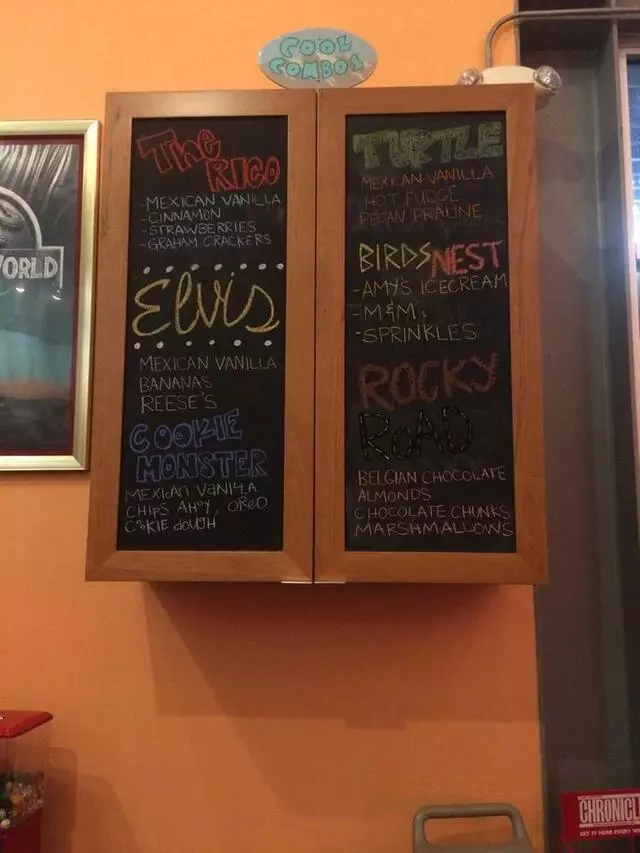 COOL
COMBOS
The
RICO
-MEXICAN VANILLA
-CINNAMON
-STRAWBERRIES
-GRAHAM CRACKERS
Elvis
MEXICAN VANILLA
BANANAS
REESE'S
COOKIE
MONSTER
MEXICAN VANILLA
CHIPS AHOY, OREO
COOKIE dOUGH
TURTLE
MEXICAN VANILLA
HOT FUDGE
PECAN PRALINE
BIRDS NEST
-AMY'S ICECREAM
-M&M
-SPRINKLES
ROCKY
ROAD
BELGIAN CHOCOLATE
ALMONDS
CHOCOLATE CHUNKS
MARSHMALLOWS
WORLD
CHRONICL
GET IT HERE EVERY